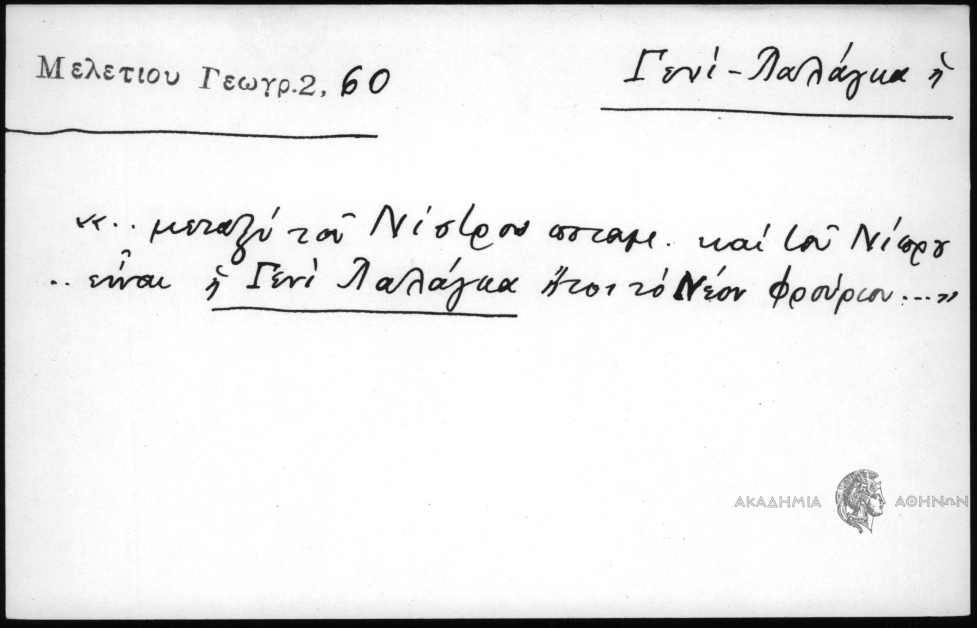 Μελετιου Γεωγρ.2, 60
Γενί - Παλάγκα ἡ
«.. μεταξύ τοῦ Νίστρου ποταμ. καί τοῦ Νίπρου
.. εἶναι ἡ Γενί Παλάγκα ἤτοι τό Νέον φρούριον...»
ΑΚΑΔΗΜΙΑ ΑΘΗΝΩΝ